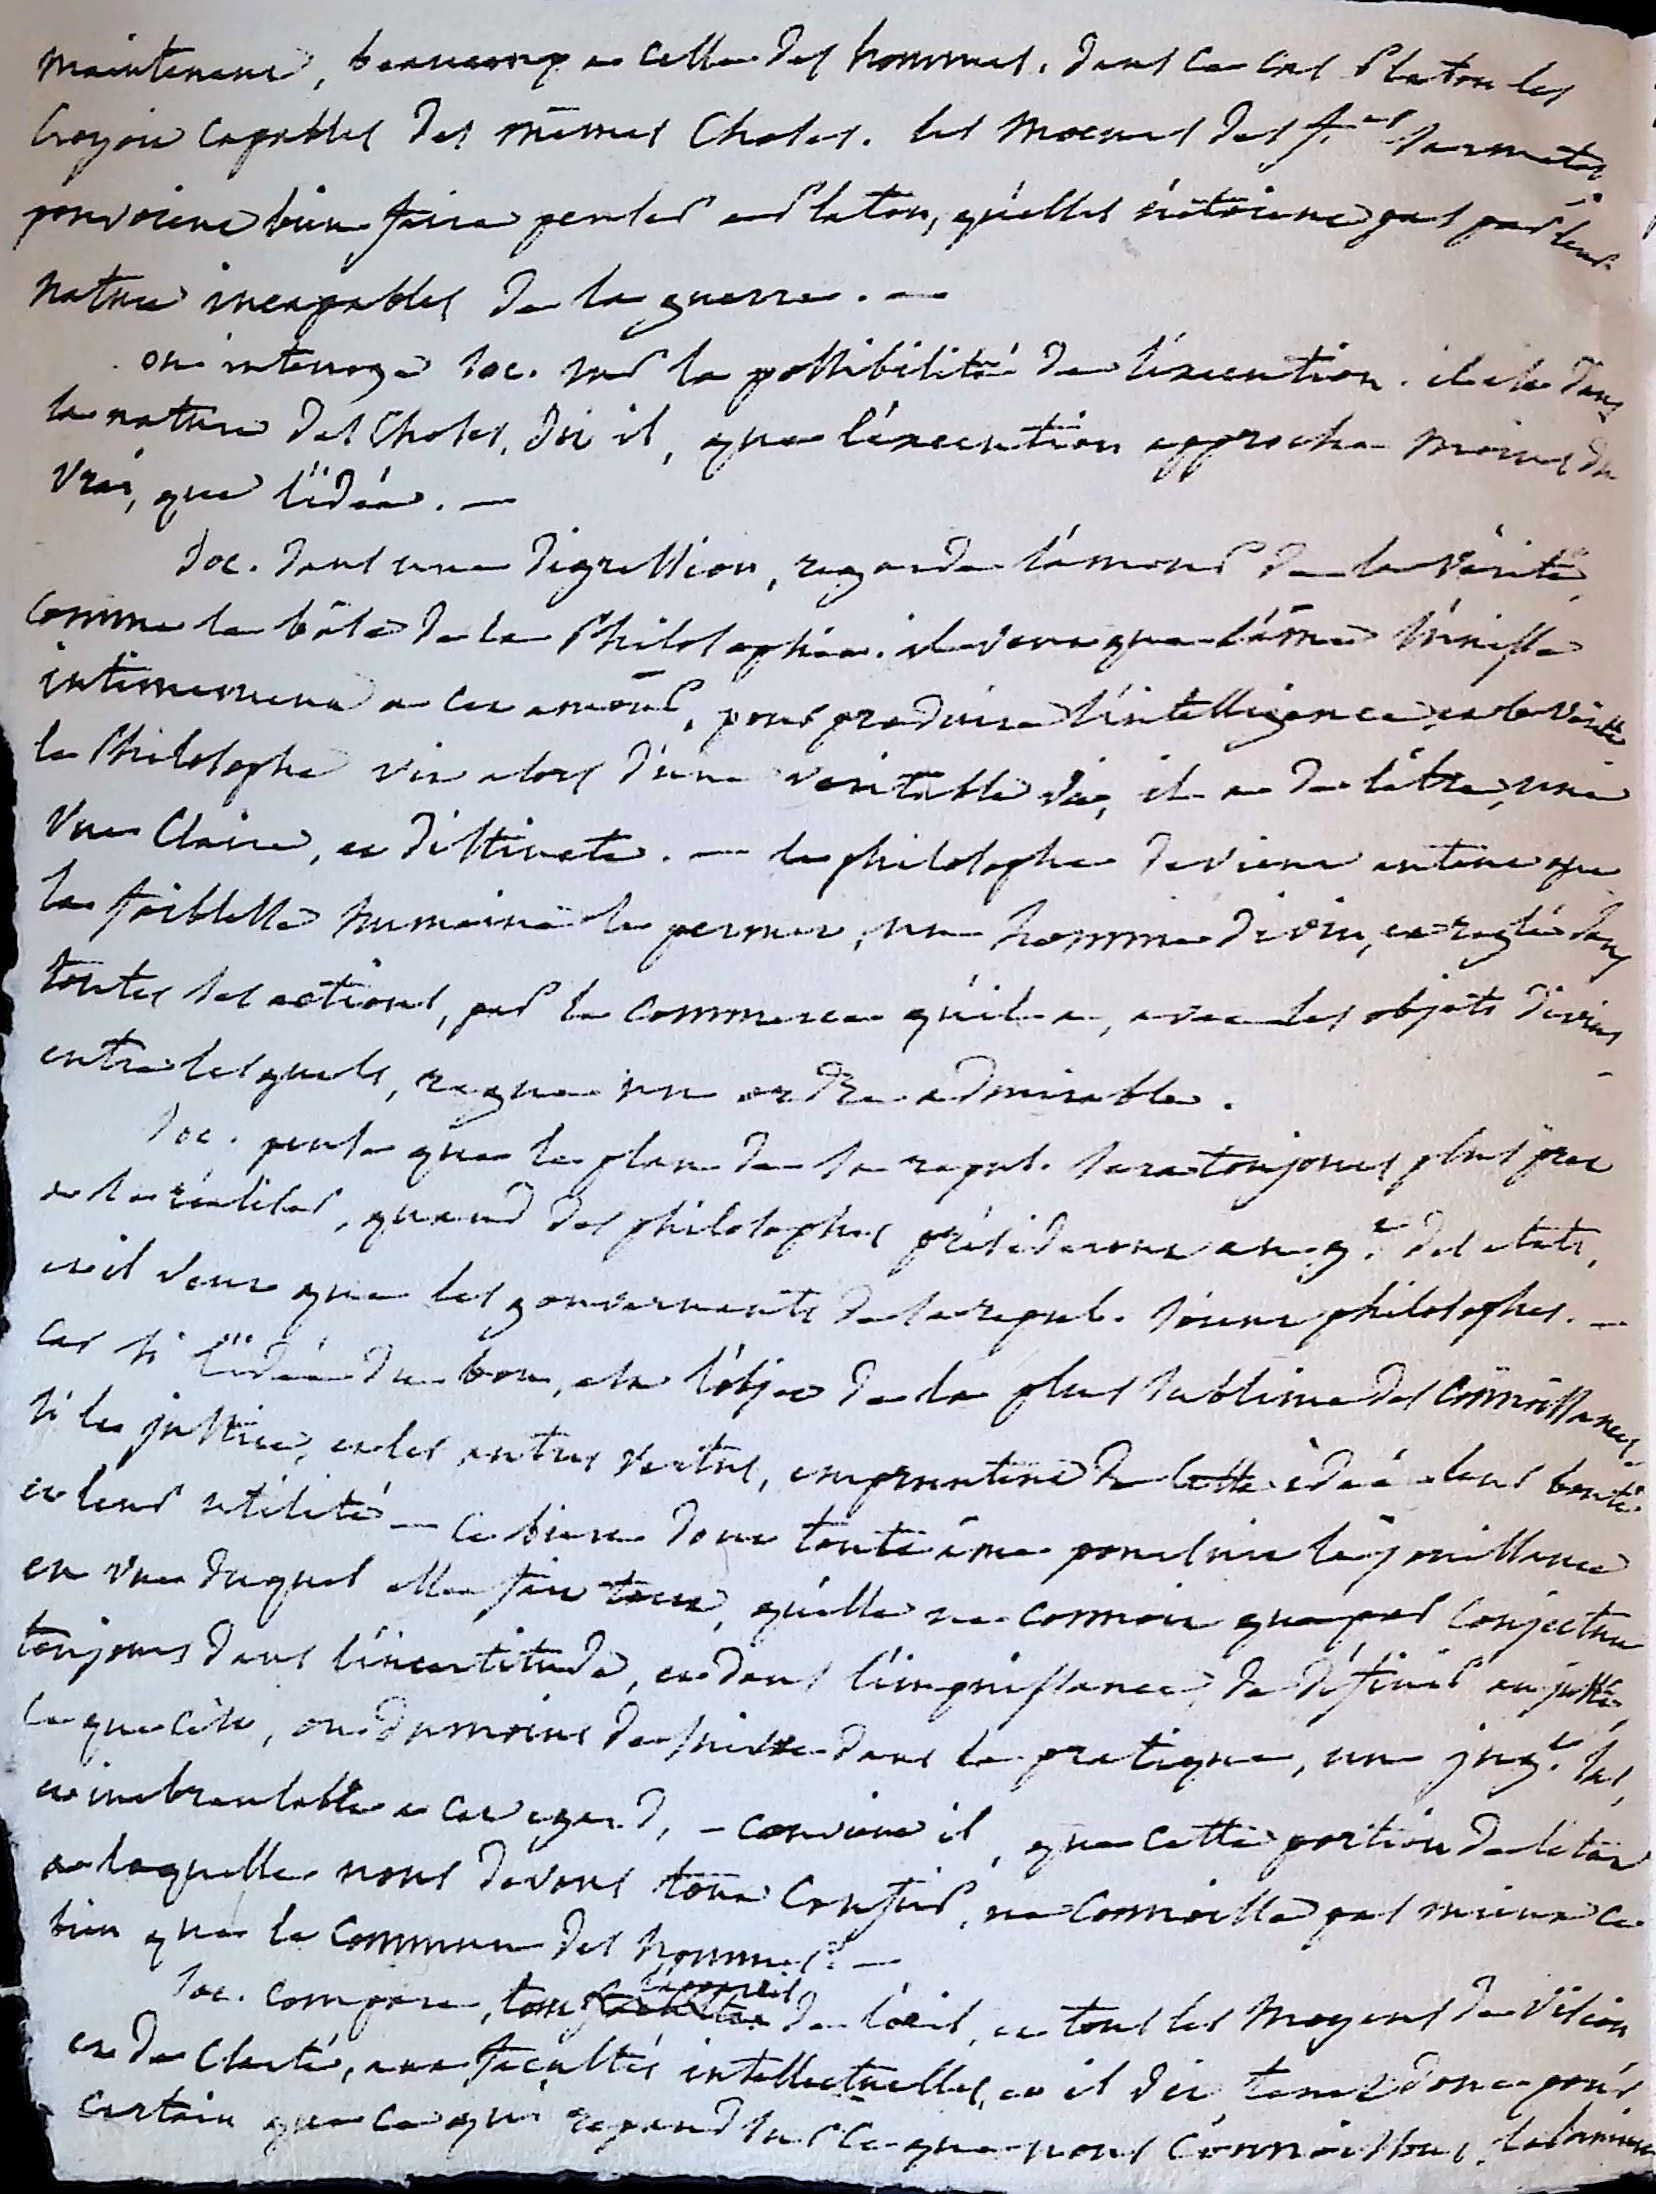 maintenant, beaucoup a celle des hommes. dans ce cas Platon les
croyoit capables des mêmes choses. les moeurs des f.es Sarmates,
pouvoient bien faire penser a Platon, qu'elles n'étoient pas par leur
nature incapables de la guerre. —
on interroge Soc. sur la possibilité de l'éxecution. il est dans
la nature des choses, dit il, que l'éxecution approche moins du
vrai, que l'idée. —
Soc. dans une digression, regarde l'amour de la vérité,
comme la bâse de la Philosophie. il veut que l'âme s'unisse
intimement a cet amour, pour produire l'intelligence, et la vérité
le Philosophe vit alors d'une veritable vie, il a de l'être, une
vue claire, et distincte. — le philosophe devient autant que
la foiblesse humaine le permet, un homme divin, et reglé dans
toutes ses actions, par le commerce qu'il a, avec des objets divins
entre lesquels, regne un ordre admirable.
Soc. pense que le plan de sa repub. sera toujours plus prêt
a se réaliser, quand des philosophes présideront au g.t des etats,
et il veut que les gouvernants de sa repub. soient philosophes. —
car si l'idée du bon, est l'objet de la plus sublime des connoissances,
si la justice, et les autres vertus, empruntent de cette idée leur bonté
et leur utilité — ce bien dont toute âme poursuit la jouissance
en vue duquel elle fait tout, qu'elle ne connoit que par conjecture
toujours dans l'incertitude, et dans l'impuissance, de définir au juste,
ce que c'est, ou du moins de suivre dans la pratique, un jug.t sur,
et inebranlable a cet egard, — convient il, que cette portion de l'etat
a laquelle nous devons tout confier, ne connoisse pas mieux ce
bien que le commun des hommes? —
Soc. compare, tout l'appareil de l'oeil, et tous les moyens de vision
et de clarté, aux facultés intellectuelles, et il dit, tenez donc pour
certain que ce qui repand sur ce que nous connoissons, la lumiere